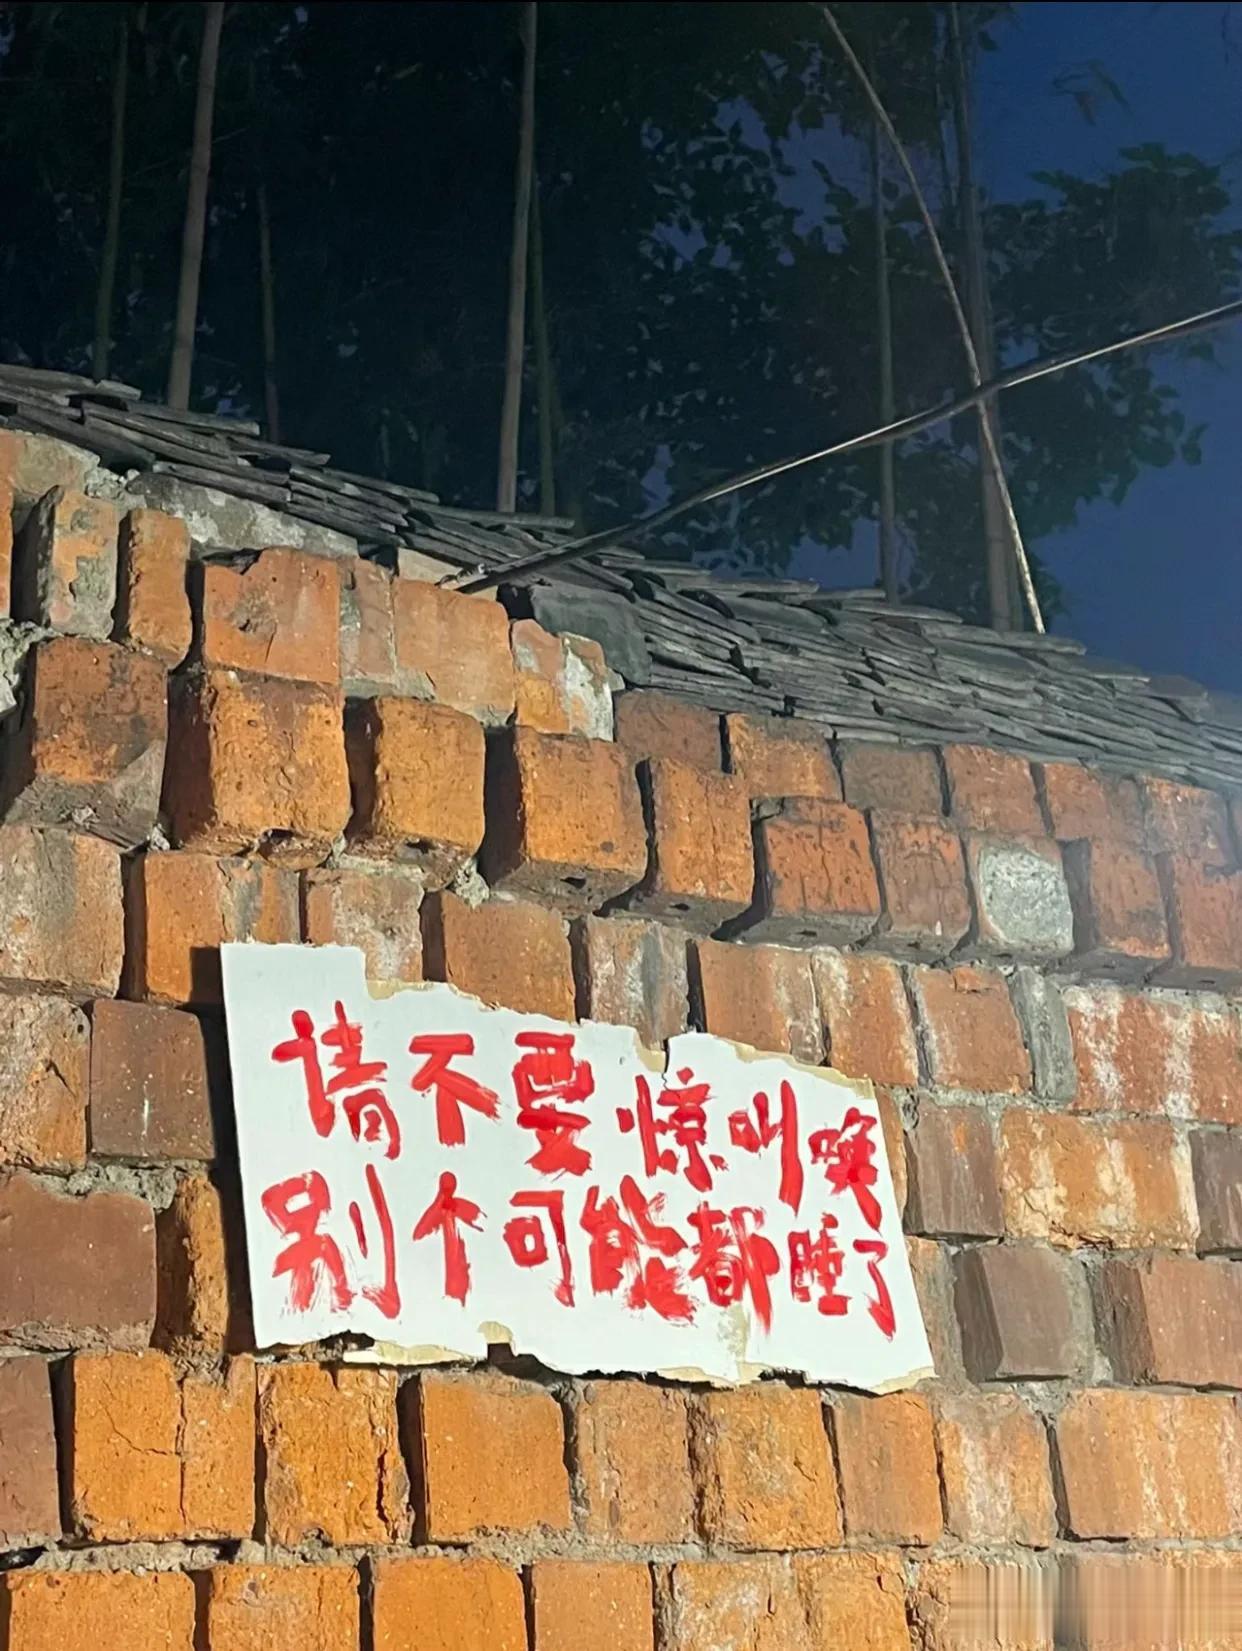 请不要惊叫唤
别个可能都睡了